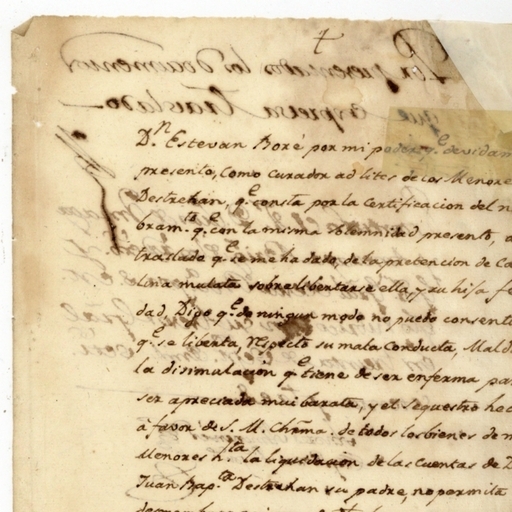 Por presentados los documentos
que expresa Traslado
Dn. Estevan Boré por mi poder, q.e devidam
presento, como curador ad lites de los Menore
Destrehan, q.e consta por la Certificacion del n
bram.to q.e con la misma solemnidad presento, a
traslado q.e se me ha dado, de la pretencion de Ca
lina mulata sobre libertarse ella, y su hija fe
dad, Digo q.e de ningun modo no puedo consenti
q.e se liberta, respecto su mala Conducta, Mald
la disimulacion q.e tiene de ser enferma par
ser apreciada mui barata, y el sequestro hec
à favor de S. M. Chrma. de todos los bienes de m
Menores h.sta la liquidacion de las cuentas de D
Juan Bap.ta Destrehan su padre, no permita